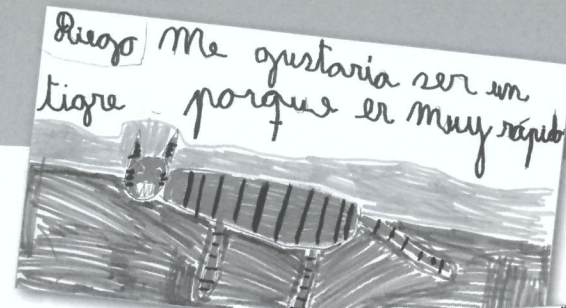 Diego Me gustaría ser un
tigre porque es muy rápido